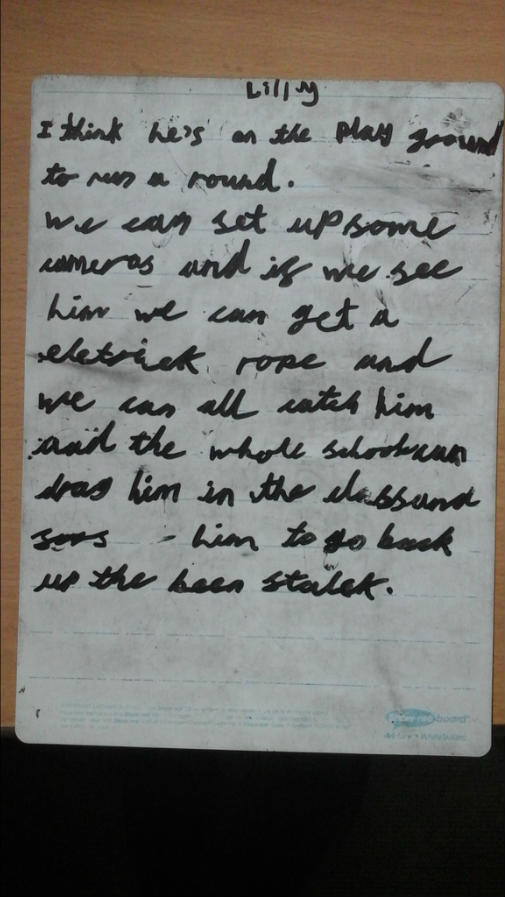 Lilly
I think he's on the play ground
to run a round.
we can set up some
cameras and if we see
him we can get a
eletrick rope and
we can all catch him
and the whole school can
drag him in the class and
him to go back
up the been stalek.
board